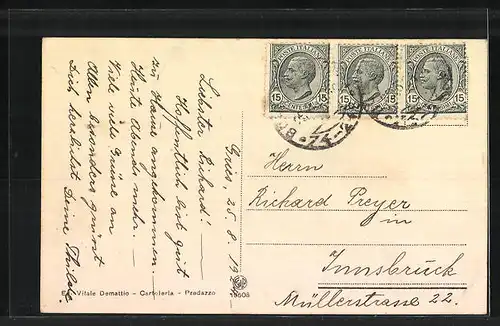 POSTE ITALIANE POSTE ITALIANE POSTE ITALIANE
15 CENTES. 15 15 CENTES. 15 15 CENTES. 15
Gries, 25. 8. 192
Liebster Richard! —
Hoffentlich bist gut
zu Hause angekommen. —
Heute Abends mehr. —
Viele viele Grüsse an
Allen besonders grüsst
Dich herzlichst Deine
Herrn
Richard Preyer
in
Innsbruck
Müllerstrasse 22.
Ed. Vitale Demattio - Cartoleria - Predazzo
19508